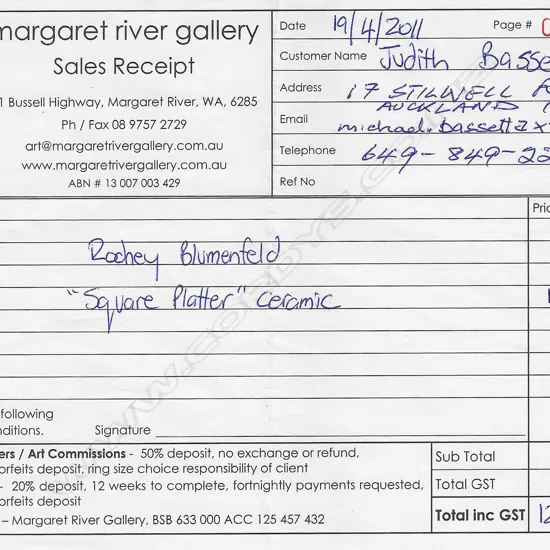 margaret river gallery
Sales Receipt
1 Bussell Highway, Margaret River, WA, 6285
Ph / Fax 08 9757 2729
art@margaretrivergallery.com.au
www.margaretrivergallery.com.au
ABN # 13 007 003 429
Date 19/4/2011 Page #
Customer Name Judith Basse
Address 17 STILWELL
AUCKLAND
Email michael.bassett@x
Telephone 649-849-22
Ref No
Pri
Rochey Blumenfeld
"Square Platter" ceramic
following
nditions. Signature
ers / Art Commissions - 50% deposit, no exchange or refund,
orfeits deposit, ring size choice responsibility of client
- 20% deposit, 12 weeks to complete, fortnightly payments requested,
orfeits deposit
– Margaret River Gallery, BSB 633 000 ACC 125 457 432
Sub Total
Total GST
Total inc GST 12